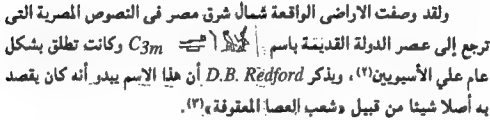 ولقد وصفت الاراضى الواقعة شمال شرق مصر فى النصوص المصرية التى
ترجع إلى عصر الدولة القديمة باسم C3m وكانت تطلق بشكل
عام علي الأسيويين(٢)، ويذكر D.B. Redford أن هذا الاسم يبدو أنه كان يقصد
به أصلا شيئا من قبيل «شعب العصا المعقوفة»(٣).